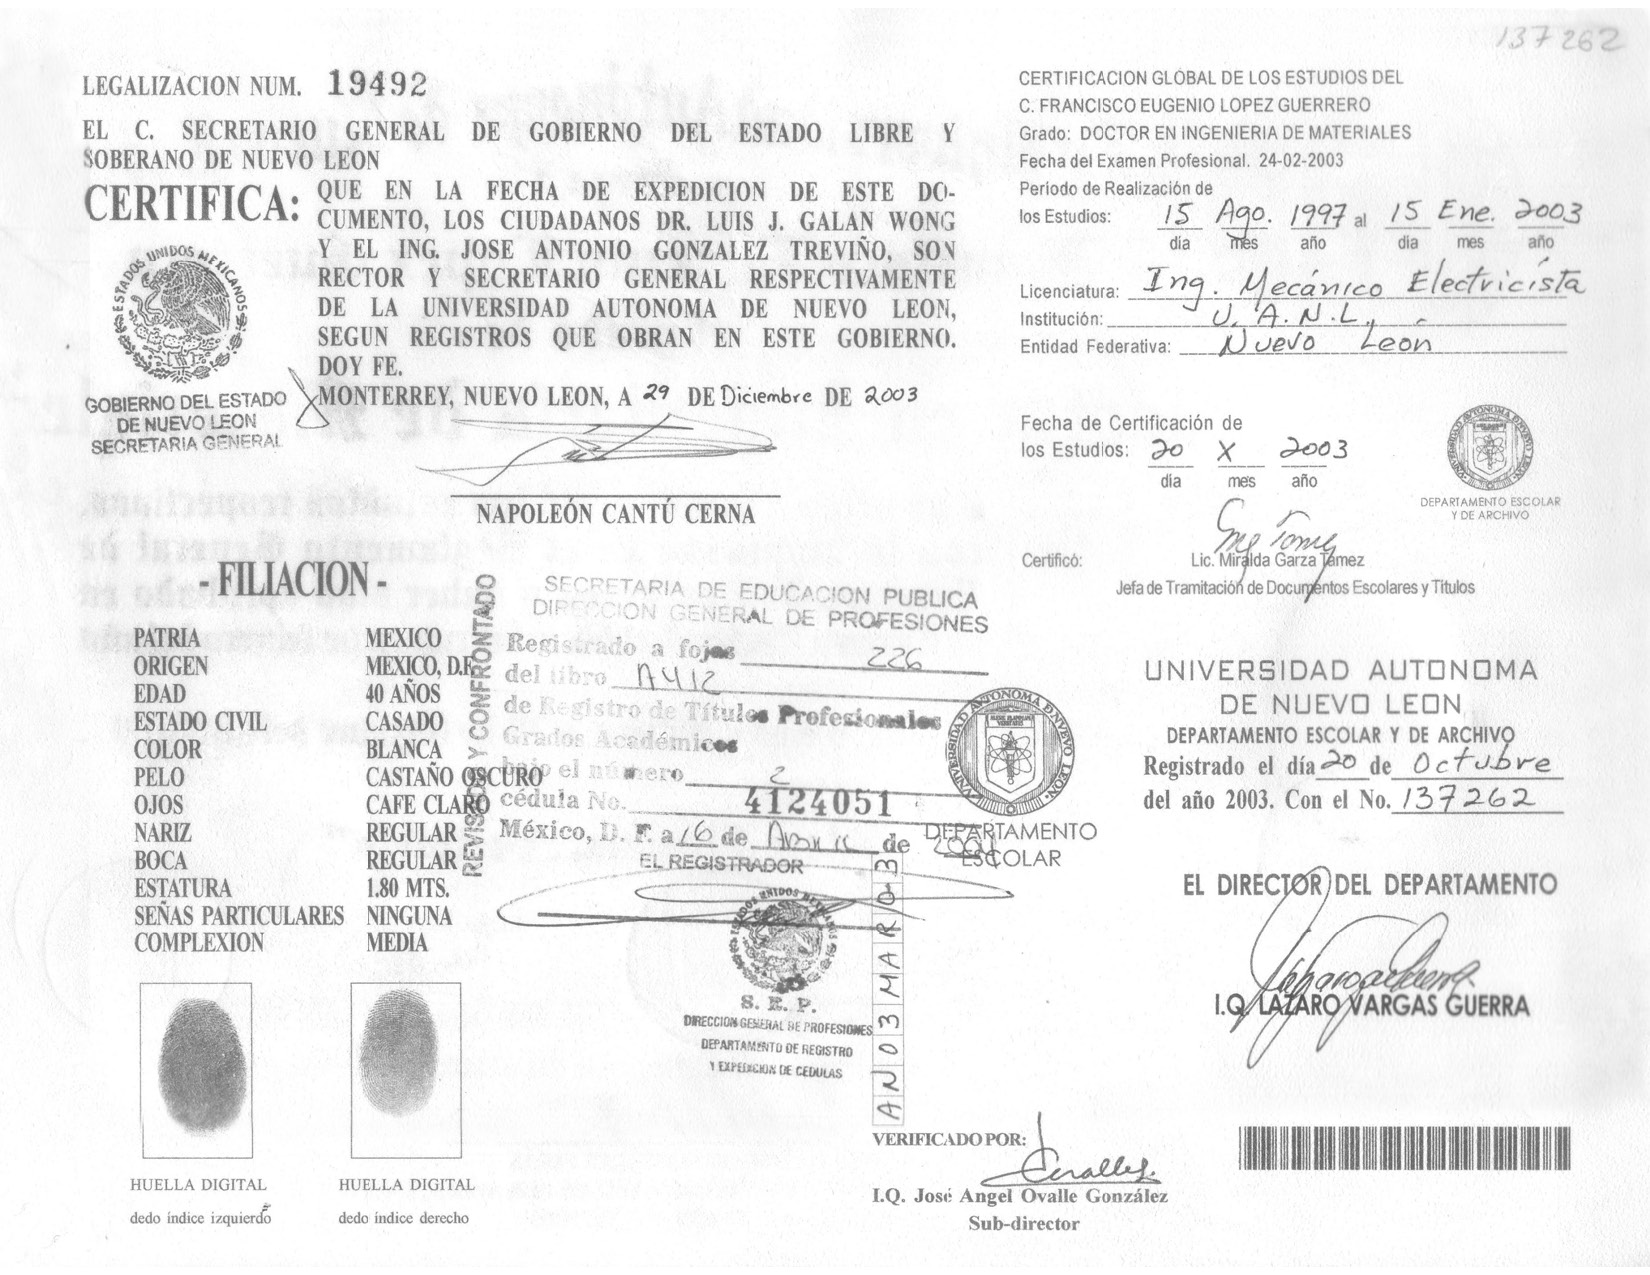 137262
LEGALIZACION NUM. 19492
EL C. SECRETARIO GENERAL DE GOBIERNO DEL ESTADO LIBRE Y
SOBERANO DE NUEVO LEON
CERTIFICA: QUE EN LA FECHA DE EXPEDICION DE ESTE DO-
CUMENTO, LOS CIUDADANOS DR. LUIS J. GALAN WONG
Y EL ING. JOSE ANTONIO GONZALEZ TREVIÑO, SON
RECTOR Y SECRETARIO GENERAL RESPECTIVAMENTE
DE LA UNIVERSIDAD AUTONOMA DE NUEVO LEON,
SEGUN REGISTROS QUE OBRAN EN ESTE GOBIERNO.
DOY FE.
MONTERREY, NUEVO LEON, A 29 DE Diciembre DE 2003
ESTADOS UNIDOS MEXICANOS
GOBIERNO DEL ESTADO
DE NUEVO LEON
SECRETARIA GENERAL
NAPOLEÓN CANTÚ CERNA
-FILIACION-
PATRIA MEXICO
ORIGEN MEXICO, D.F.
EDAD 40 AÑOS
ESTADO CIVIL CASADO
COLOR BLANCA
PELO CASTAÑO OSCURO
OJOS CAFE CLARO
NARIZ REGULAR
BOCA REGULAR
ESTATURA 1.80 MTS.
SEÑAS PARTICULARES NINGUNA
COMPLEXION MEDIA
HUELLA DIGITAL
dedo índice izquierdo
HUELLA DIGITAL
dedo índice derecho
REVISADO Y CONFRONTADO
SECRETARIA DE EDUCACION PUBLICA
DIRECCION GENERAL DE PROFESIONES
Registrado a fojas 226
del libro A412
de Registro de Títulos Profesionales
Grados Académicos
bajo el número 2
cédula No. 4124051
México, D. F. a 16 de Abril de
EL REGISTRADOR
S. E. P.
DIRECCION GENERAL DE PROFESIONES
DEPARTAMENTO DE REGISTRO
Y EXPEDICION DE CEDULAS
DEPARTAMENTO
ESCOLAR
VERIFICADO POR:
I.Q. José Angel Ovalle González
Sub-director
CERTIFICACION GLOBAL DE LOS ESTUDIOS DEL
C. FRANCISCO EUGENIO LOPEZ GUERRERO
Grado: DOCTOR EN INGENIERIA DE MATERIALES
Fecha del Examen Profesional. 24-02-2003
Período de Realización de
los Estudios: 15 Ago. 1997 al 15 Ene. 2003
día mes año día mes año
Licenciatura: Ing. Mecánico Electricista
Institución: U.A.N.L.
Entidad Federativa: Nuevo Leon
Fecha de Certificación de
los Estudios: 20 X 2003
día mes año
DEPARTAMENTO ESCOLAR
Y DE ARCHIVO
Certificó: Lic. Miralda Garza Tamez
Jefa de Tramitación de Documentos Escolares y Títulos
UNIVERSIDAD AUTONOMA
DE NUEVO LEON
DEPARTAMENTO ESCOLAR Y DE ARCHIVO
Registrado el día 20 de Octubre
del año 2003. Con el No. 137262
EL DIRECTOR DEL DEPARTAMENTO
I.Q. LAZARO VARGAS GUERRA